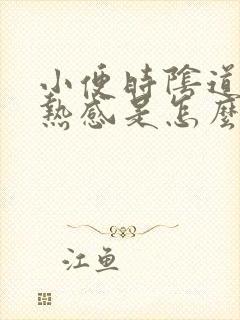 小便時陰道
熱感是怎麼
江魚